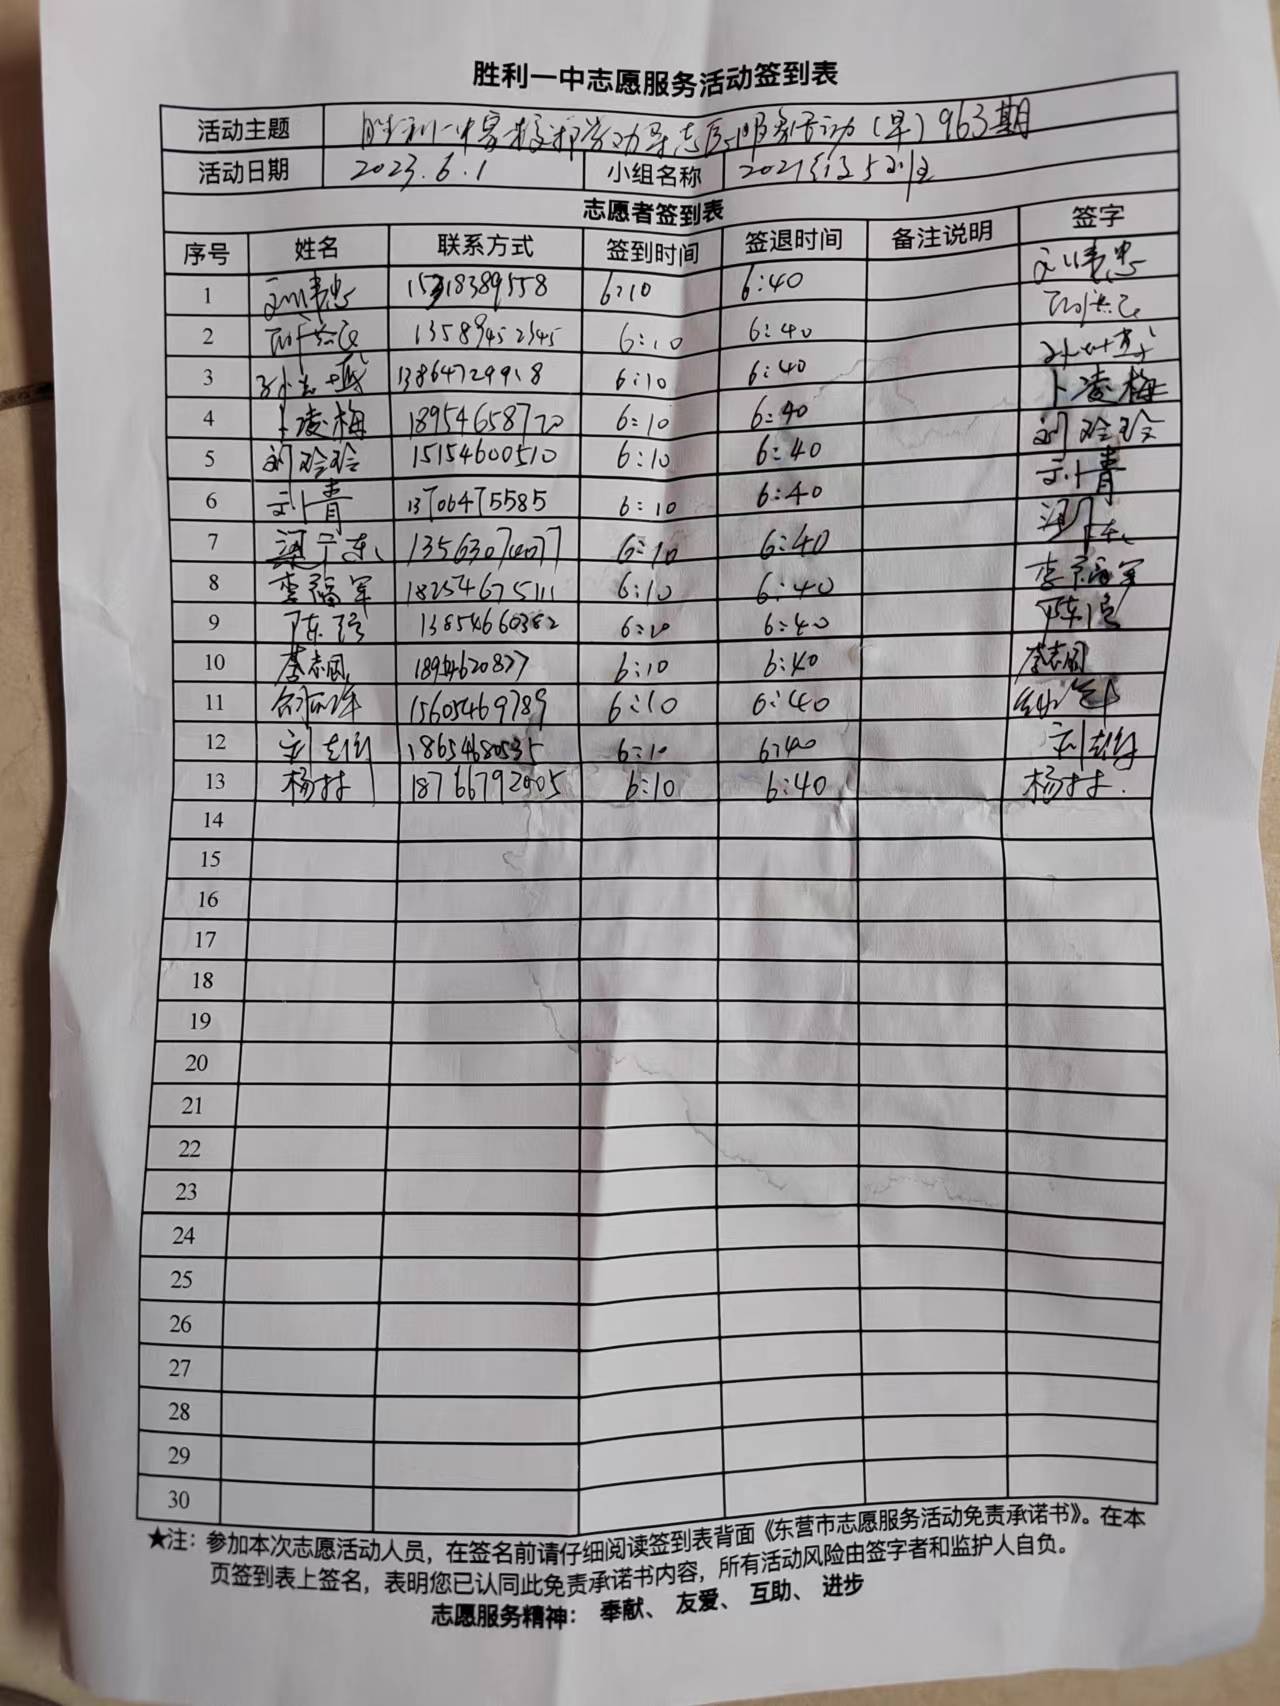 胜利一中志愿服务活动签到表
活动主题 胜利一中家校 志愿服务活动(早)963期
活动日期 2023.6.1 小组名称 2021级5班
志愿者签到表
序号 姓名 联系方式 签到时间 签退时间 备注说明 签字
1 6:10 6:40
2 13589452345 6:10 6:40
3 13864729918 6:10 6:40
4 卜凌梅 18954658770 6:10 6:40 卜凌梅
5 刘玲玲 15154600510 6:10 6:40 刘玲玲
6 刘青 13706475585 6:10 6:40 刘青
7 梁宁东 6:10 6:40
8 李福军 18254675111 6:10 6:40 李福军
9 陈强 13854660382 6:10 6:40 陈强
10 6:10 6:40
11 15605469789 6:10 6:40
12 6:10 6:40
13 杨村 18766792005 6:10 6:40 杨村.
14
15
16
17
18
19
20
21
22
23
24
25
26
27
28
29
30
★注：参加本次志愿活动人员，在签名前请仔细阅读签到表背面《东营市志愿服务活动免责承诺书》。在本
页签到表上签名，表明您已认同此免责承诺书内容，所有活动风险由签字者和监护人自负。
志愿服务精神： 奉献、 友爱、 互助、 进步